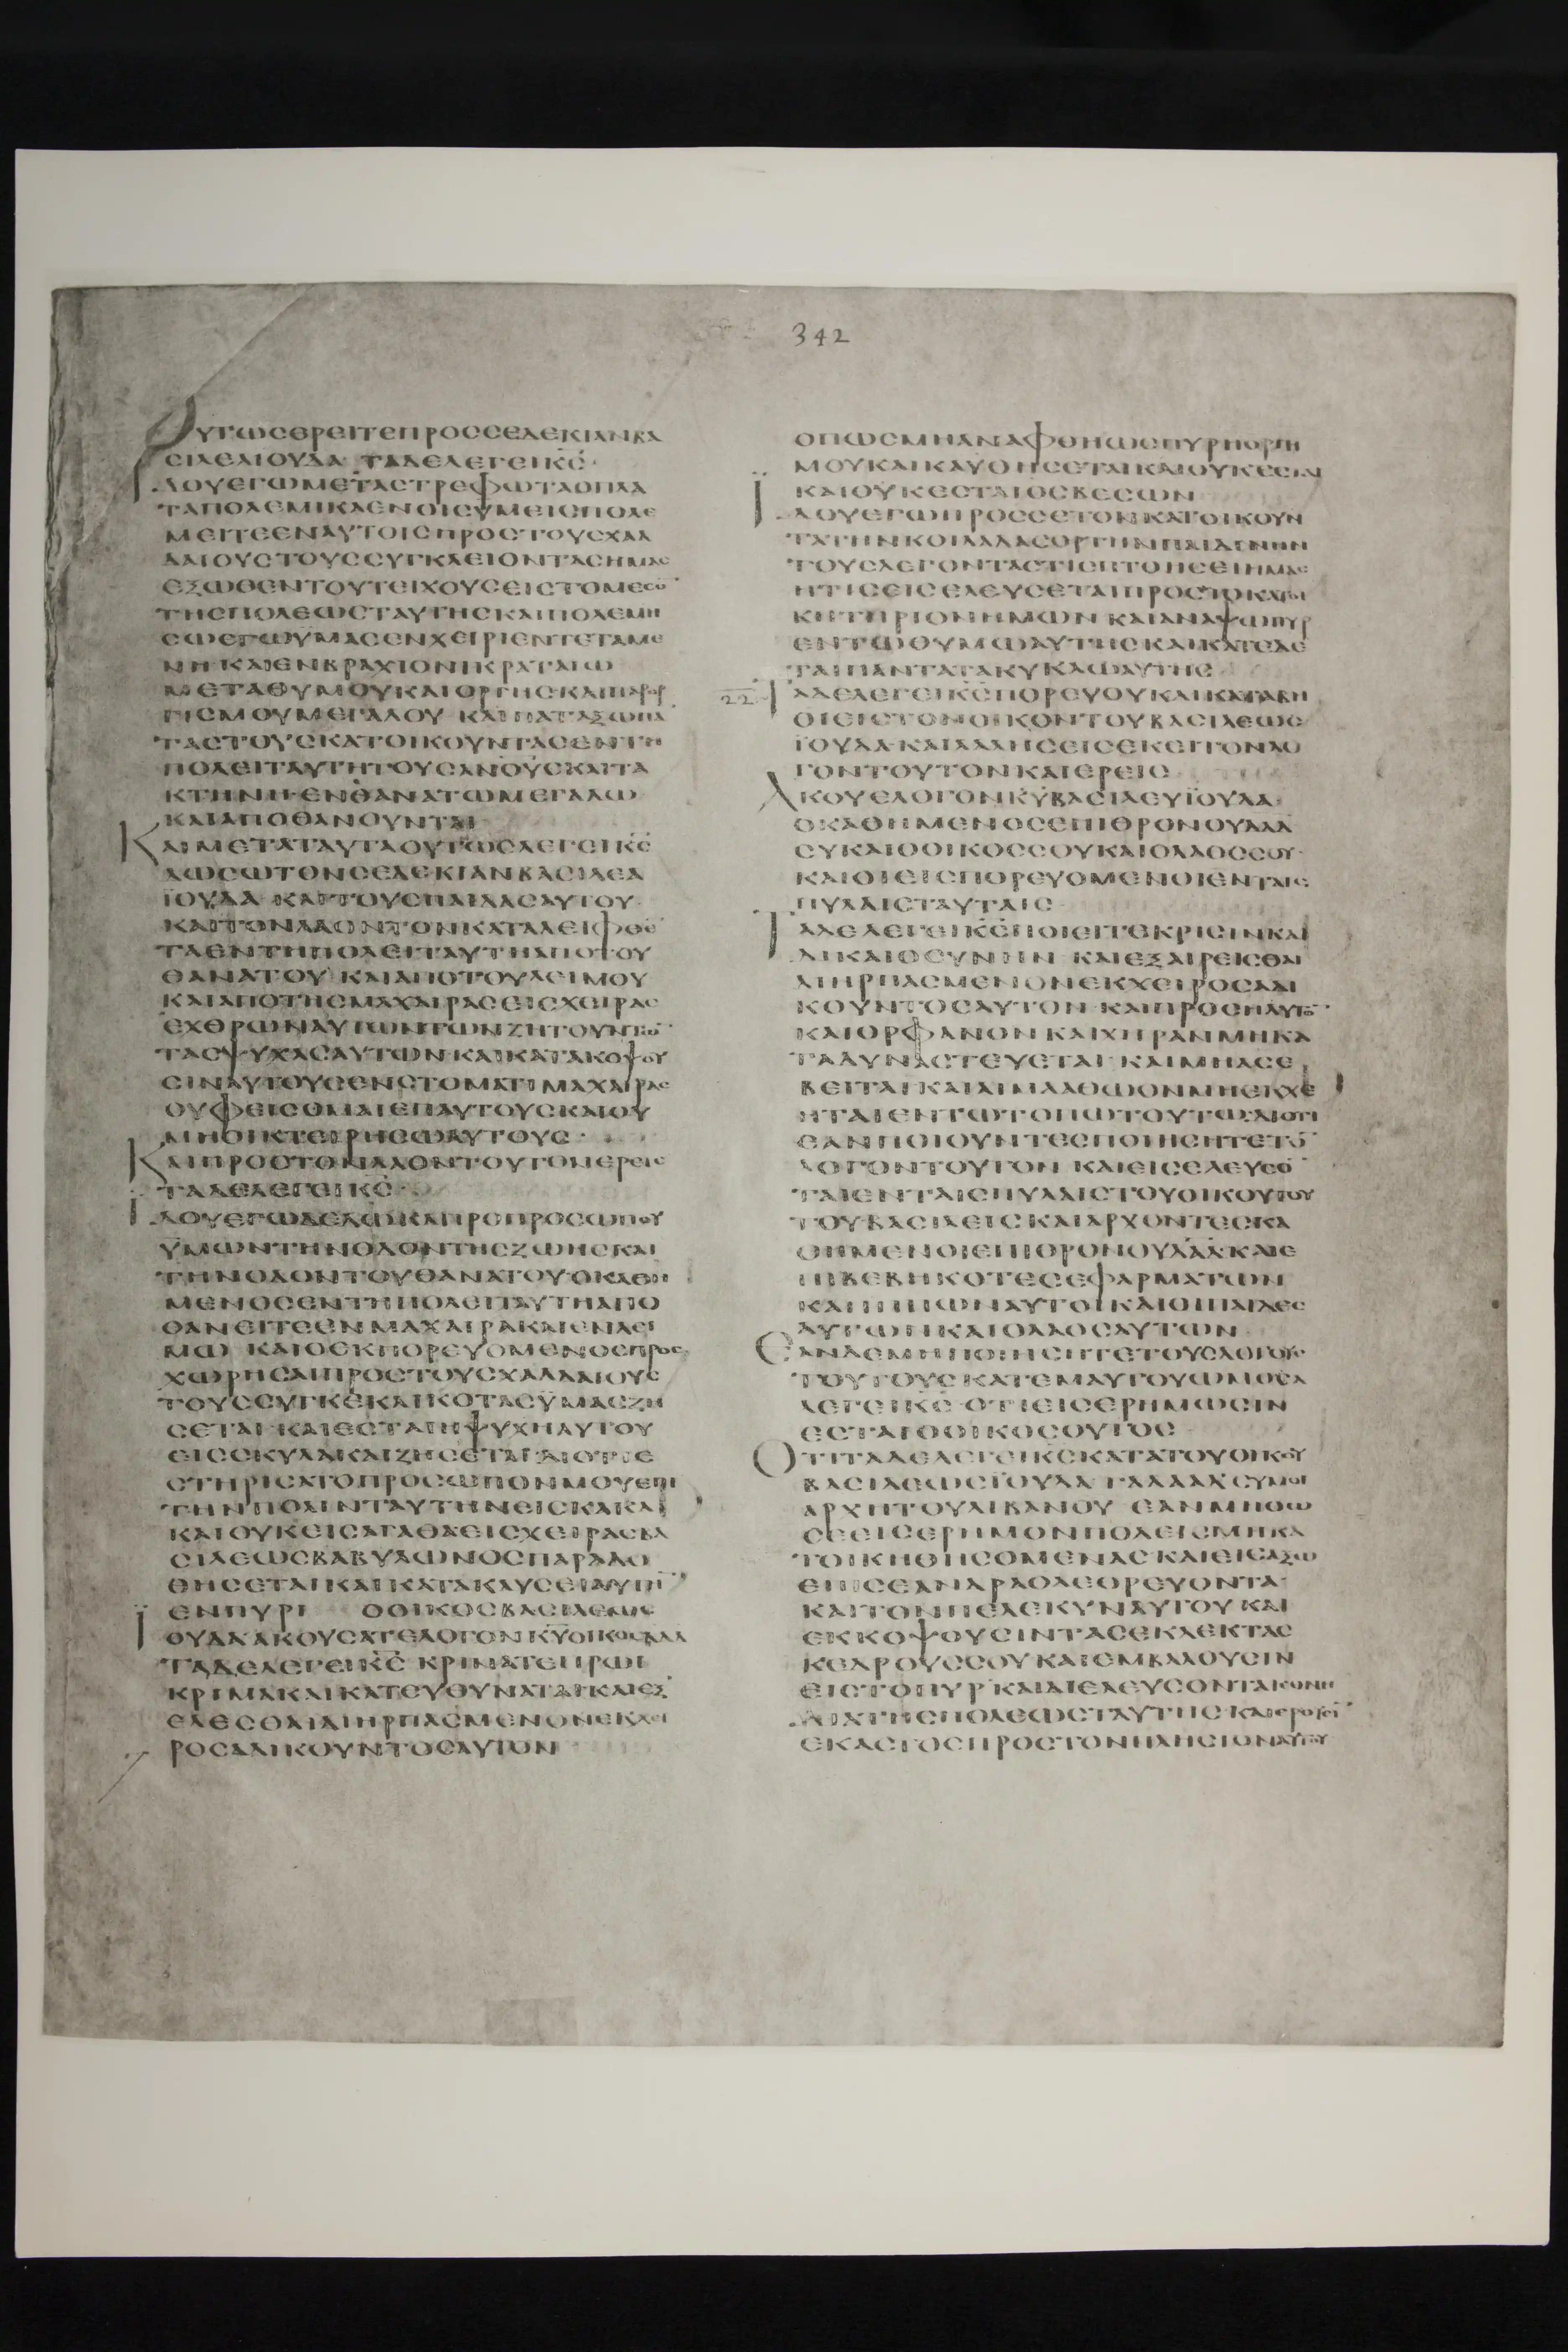 342
ΟΥΤΩСΕΡΕΙΤΕΠΡΟССΕΔΕΚΙΑΝΒΑ
СΙΛΕΑΙΟΥΔΑ ΤΑΔΕΛΕΓΕΙΚС
ΙΔΟΥΕΓΩΜΕΤΑСΤΡΕΦΩΤΑΟΠΛΑ
ΤΑΠΟΛΕΜΙΚΑΕΝΟΙСΥΜΕΙСΠΟΛΕ
ΜΕΙΤΕΕΝΑΥΤΟΙСΠΡΟСΤΟΥСΧΑΛ
ΔΑΙΟΥСΤΟΥССΥΓΚΛΕΙΟΝΤΑСΗΜΑС
ΕΞΩΘΕΝΤΟΥΤΕΙΧΟΥСΕΙСΤΟΜΕСΟ
ΤΗСΠΟΛΕΩСΤΑΥΤΗСΚΑΙΠΟΛΕΜΗ
СΩΕΓΩΥΜΑСΕΝΧΕΙΡΙΕΝΤΕΤΑΜΕ
ΝΗ ΚΑΙΕΝΒΡΑΧΙΟΝΙΚΡΑΤΑΙΩ
ΜΕΤΑΘΥΜΟΥΚΑΙΟΡΓΗСΚΑΙΠΑΡΟΡ
ΓΙСΜΟΥΜΕΓΑΛΟΥ ΚΑΙΠΑΤΑΞΩΠΑ
ΤΑСΤΟΥСΚΑΤΟΙΚΟΥΝΤΑСΕΝΤΗ
ΠΟΛΕΙΤΑΥΤΗΤΟΥСΑΝΟΥСΚΑΙΤΑ
ΚΤΗΝΗ ΕΝΘΑΝΑΤΩΜΕΓΑΛΩ
ΚΑΙΑΠΟΘΑΝΟΥΝΤΑΙ
ΚΑΙΜΕΤΑΤΑΥΤΑΟΥΤΩСΛΕΓΕΙΚС
ΔΩСΩΤΟΝСΕΔΕΚΙΑΝΒΑСΙΛΕΑ
ΪΟΥΔΑ ΚΑΙΤΟΥСΠΑΙΔΑСΑΥΤΟΥ
ΚΑΙΤΟΝΛΑΟΝΤΟΝΚΑΤΑΛΕΙΦΘΕ
ΤΑΕΝΤΗΠΟΛΕΙΤΑΥΤΗΑΠΟΤΟΥ
ΘΑΝΑΤΟΥ ΚΑΙΑΠΟΤΟΥΛΕΙΜΟΥ
ΚΑΙΑΠΟΤΗСΜΑΧΑΙΡΑСΕΙСΧΕΙΡΑС
ΕΧΘΡΩΝΑΥΤΩΝΤΩΝΖΗΤΟΥΝΤΩ
ΤΑСΨΥΧΑСΑΥΤΩΝΚΑΙΚΑΤΑΚΟΨΟΥ
СΙΝΑΥΤΟΥСΕΝСΤΟΜΑΤΙΜΑΧΑΙΡΑС
ΟΥΦΕΙСΟΜΑΙΕΠΑΥΤΟΥСΚΑΙΟΥ
ΜΗΟΙΚΤΕΙΡΗСΩΑΥΤΟΥС
ΚΑΙΠΡΟСΤΟΝΛΑΟΝΤΟΥΤΟΝΕΡΕΙС
ΤΑΔΕΛΕΓΕΙΚС
ΙΔΟΥΕΓΩΔΕΔΩΚΑΠΡΟΠΡΟСΩΠΟΥ
ΥΜΩΝΤΗΝΟΔΟΝΤΗСΖΩΗСΚΑΙ
ΤΗΝΟΔΟΝΤΟΥΘΑΝΑΤΟΥ ΟΚΑΘΗ
ΜΕΝΟСΕΝΤΗΠΟΛΕΙΤΑΥΤΗΑΠΟ
ΘΑΝΕΙΤΕΕΝΜΑΧΑΙΡΑΚΑΙΕΝΛΕΙ
ΜΩ ΚΑΙΟΕΚΠΟΡΕΥΟΜΕΝΟСΠΡΟС
ΧΩΡΗСΑΙΠΡΟСΤΟΥСΧΑΛΔΑΙΟΥС
ΤΟΥССΥΓΚΕΚΛΙΚΟΤΑСΥΜΑСΖΗ
СΕΤΑΙ ΚΑΙΕСΤΑΙΗΨΥΧΗΑΥΤΟΥ
ΕΙССΚΥΛΑΚΑΙΖΗСΕΤΑΙ ΔΙΟΤΙΕ
СΤΗΡΙСΑΤΟΠΡΟСΩΠΟΝΜΟΥΕΠΙ
ΤΗΝΠΟΛΙΝΤΑΥΤΗΝΕΙСΚΑΚΑ
ΚΑΙΟΥΚΕΙСΑΓΑΘΑΕΙСΧΕΙΡΑСΒΑ
СΙΛΕΩСΒΑΒΥΛΩΝΟСΠΑΡΑΔΟ
ΘΗСΕΤΑΙΚΑΙΚΑΤΑΚΑΥСΕΙΑΥΤΗ
ΕΝΠΥΡΙ ΟΟΙΚΟСΒΑСΙΛΕΩС
ΙΟΥΔΑ ΑΚΟΥСΑΤΕΛΟΓΟΝΚΥΟΙΚΟСΔΑΔ
ΤΑΔΕΛΕΓΕΙΚС ΚΡΙΝΑΤΕΠΡΩΙ
ΚΡΙΜΑΚΑΙΚΑΤΕΥΘΥΝΑΤΑΙΚΑΙΕΞ
ΕΛΕСΘΑΙΔΙΗΡΠΑСΜΕΝΟΝΕΚΧΕΙ
ΡΟСΑΔΙΚΟΥΝΤΟСΑΥΤΟΝ
ΟΠΩСΜΗΑΝΑΦΘΗΩСΠΥΡΗΟΡΓΗ
ΜΟΥΚΑΙΚΑΥΘΗСΕΤΑΙΚΑΙΟΥΚΕСΤΑΙ
ΚΑΙΟΥΚΕСΤΑΙΟСΒΕСΩΝ
ΙΔΟΥΕΓΩΠΡΟССΕΤΟΝΚΑΤΟΙΚΟΥΝ
ΤΑΤΗΝΚΟΙΛΑΔΑСΟΡΤΗΝΠΑΙΔΙΝΗΝ
ΤΟΥСΛΕΓΟΝΤΑСΤΙСΠΤΟΗСΕΙΗΜΑС
ΗΤΙСΕΙСΕΛΕΥСΕΤΑΙΠΡΟСΤΟΚΑΤΟΙ
ΚΗΤΗΡΙΟΝΗΜΩΝ ΚΑΙΑΝΑΨΩΠΥΡ
ΕΝΤΩΔΥΜΩΑΥΤΗСΚΑΙΚΑΤΕΔΕ
ΤΑΙΠΑΝΤΑΤΑΚΥΚΛΩΑΥΤΗС
22 ΤΑΔΕΛΕΓΕΙΚСΠΟΡΕΥΟΥΚΑΙΚΑΤΑΒΗ
ΘΙΕΙСΤΟΝΟΙΚΟΝΤΟΥΒΑСΙΛΕΩС
ΪΟΥΔΑ ΚΑΙΛΑΛΗСΕΙСΕΚΕΙΤΟΝΛΟ
ΓΟΝΤΟΥΤΟΝΚΑΙΕΡΕΙС
ΑΚΟΥΕΛΟΓΟΝΚΥΒΑСΙΛΕΥΪΟΥΔΑ
ΟΚΑΘΗΜΕΝΟСΕΠΙΘΡΟΝΟΥΔΑΔ
СΥΚΑΙΟΟΙΚΟССΟΥΚΑΙΟΛΑΟССΟΥ
ΚΑΙΟΙΕΙСΠΟΡΕΥΟΜΕΝΟΙΕΝΤΑΙС
ΠΥΛΑΙСΤΑΥΤΑΙС
ΤΑΔΕΛΕΓΕΙΚСΠΟΙΕΙΤΕΚΡΙСΙΝΚΑΙ
ΔΙΚΑΙΟСΥΝΗΝ ΚΑΙΕΞΑΙΡΕΙСΘΑΙ
ΔΙΗΡΠΑСΜΕΝΟΝΕΚΧΕΙΡΟСΑΔΙ
ΚΟΥΝΤΟСΑΥΤΟΝ ΚΑΙΠΡΟСΗΛΥΤΟ
ΚΑΙΟΡΦΑΝΟΝ ΚΑΙΧΗΡΑΝΜΗΚΑ
ΤΑΔΥΝΑСΤΕΥΕΤΑΙ ΚΑΙΜΗΑСΕ
ΒΕΙΤΑΙ ΚΑΙΑΙΜΑΑΘΩΟΝΜΗΕΚΧΕ
ΗΤΑΙΕΝΤΩΤΟΠΩΤΟΥΤΩ ΔΙΟΤΙ
ΕΑΝΠΟΙΟΥΝΤΕСΠΟΙΗСΗΤΕΤΟ
ΛΟΓΟΝΤΟΥΤΟΝ ΚΑΙΕΙСΕΛΕΥСΟ
ΤΑΙΕΝΤΑΙСΠΥΛΑΙСΤΟΥΟΙΚΟΥΤΟΥ
ΤΟΥΒΑСΙΛΕΙСΚΑΙΑΡΧΟΝΤΕСΚΑ
ΘΗΜΕΝΟΙΕΠΙΘΡΟΝΟΥΔΑΔ ΚΑΙΕ
ΠΙΒΕΒΗΚΟΤΕСΕΦΑΡΜΑΤΩΝ
ΚΑΙΙΠΠΩΝΑΥΤΟΙΚΑΙΟΙΠΑΙΔΕС
ΑΥΤΩΝΚΑΙΟΛΑΟСΑΥΤΩΝ
ΕΑΝΔΕΜΗΠΟΙΗСΗΤΕΤΟΥСΛΟΓΟΥС
ΤΟΥΤΟΥСΚΑΤΕΜΑΥΤΟΥΩΜΟСΑ
ΛΕΓΕΙΚС ΟΤΙΕΙСΕΡΗΜΩСΙΝ
ΕСΤΑΙΟΟΙΚΟСΟΥΤΟС
ΟΤΙΤΑΔΕΛΕΓΕΙΚСΚΑΤΑΤΟΥΟΙΚΟΥ
ΒΑСΙΛΕΩСΪΟΥΔΑ ΓΑΛΑΑΔСΥΜΟΙ
ΑΡΧΗΤΟΥΛΙΒΑΝΟΥ ΕΑΝΜΗΘΩ
СΕΕΙСΕΡΗΜΟΝΠΟΛΕΙСΜΗΚΑ
ΤΟΙΚΗΘΗСΟΜΕΝΑСΚΑΙΕΙСΑΞΩ
ΕΠΙСΕΑΝΔΡΑΟΛΕΘΡΕΥΟΝΤΑ
ΚΑΙΤΟΝΠΕΛΕΚΥΝΑΥΤΟΥ ΚΑΙ
ΕΚΚΟΨΟΥСΙΝΤΑСΕΚΛΕΚΤΑС
ΚΕΔΡΟΥССΟΥΚΑΙΕΜΒΑΛΟΥСΙΝ
ΕΙСΤΟΠΥΡ ΚΑΙΔΙΕΛΕΥСΟΝΤΑΙΕΘΝΗ
ΔΙΑΤΗСΠΟΛΕΩСΤΑΥΤΗСΚΑΙΕΡΟΥСΙ
ΕΚΑСΤΟСΠΡΟСΤΟΝΠΛΗСΙΟΝΑΥΤΟΥ